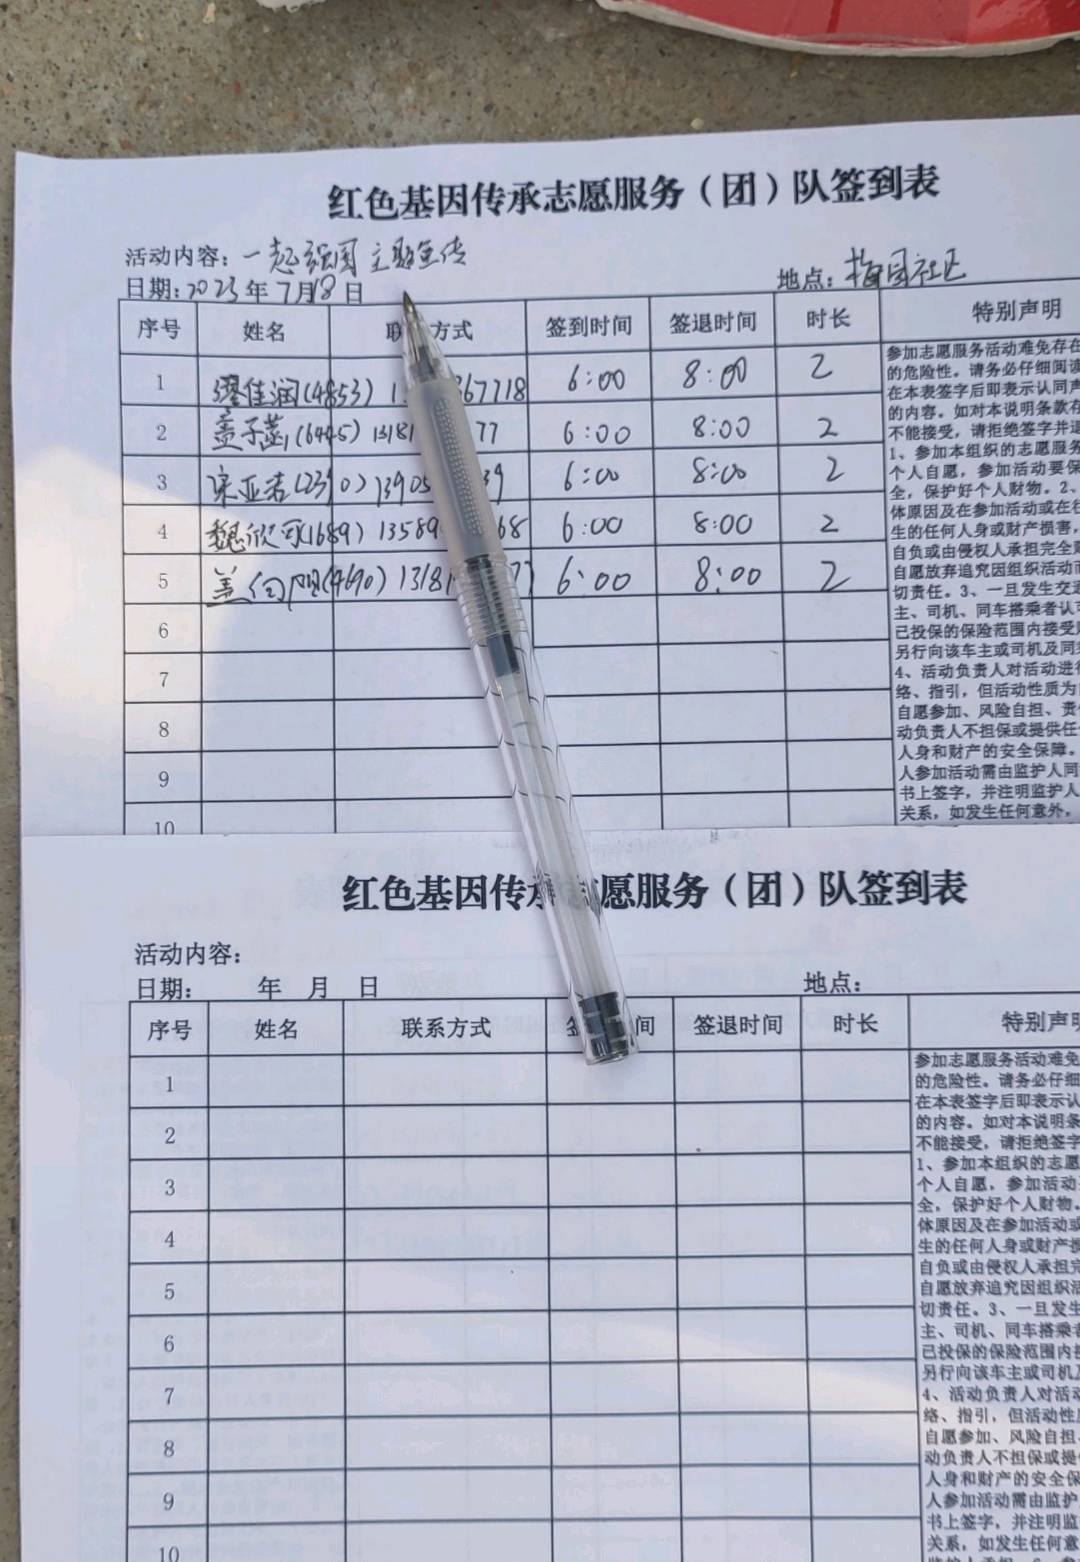 红色基因传承志愿服务（团）队签到表
活动内容：一起强国 主题宣传
日期：2023年7月18日 地点：梅园社区
序号 姓名 联 方式 签到时间 签退时间 时长 特别声明
1 佳润(4853) 1 67718 6:00 8:00 2
2 孟子 (6445) 1318 77 6:00 8:00 2
3 宋亚 (2390) 13905 39 6:00 8:00 2
4 魏欣可(1689) 13589 68 6:00 8:00 2
5 盖 (4690) 1318 7 6:00 8:00 2
6
7
8
9
10
参加志愿服务活动难免存在
的危险性。请务必仔细阅读
在本表签字后即表示认同声
的内容。如对本说明条款存
不能接受，请拒绝签字并退
1、参加本组织的志愿服务
个人自愿，参加活动要保
全，保护好个人财物。2、
体原因及在参加活动或在往
生的任何人身或财产损害，
自负或由侵权人承担完全
自愿放弃追究因组织活动而
切责任。3、一旦发生交通
主、司机、同车搭乘者认可
已投保的保险范围内接受
另行向该车主或司机及同
4、活动负责人对活动进行
络、指引，但活动性质为
自愿参加、风险自担、责
动负责人不担保或提供任
人身和财产的安全保障。
人参加活动需由监护人同
书上签字，并注明监护人
关系，如发生任何意外，
红色基因传承志愿服务（团）队签到表
活动内容：
日期： 年 月 日 地点：
序号 姓名 联系方式 签 间 签退时间 时长 特别声明
1
2
3
4
5
6
7
8
9
10
参加志愿服务活动难免
的危险性。请务必仔细
在本表签字后即表示认
的内容。如对本说明条
不能接受，请拒绝签字
1、参加本组织的志愿
个人自愿，参加活动
全，保护好个人财物。
体原因及在参加活动或
生的任何人身或财产损
自负或由侵权人承担完
自愿放弃追究因组织活
切责任。3、一旦发生
主、司机、同车搭乘者
已投保的保险范围内接
另行向该车主或司机及
4、活动负责人对活动
络、指引，但活动性
自愿参加、风险自担、
动负责人不担保或提
人身和财产的安全保
人参加活动需由监护
书上签字，并注明监
关系，如发生任何意